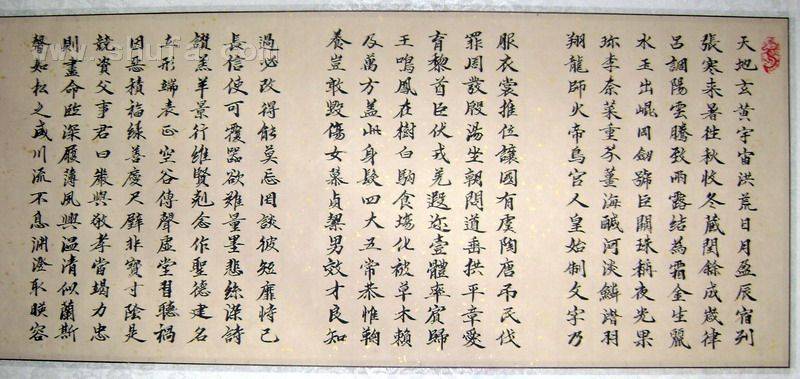 天地玄黃宇宙洪荒日月盈辰宿列
張寒来暑往秋收冬藏閏餘成歲律
吕調陽雲騰致雨露結為霜金生麗
水玉出崐岡劍號巨闕珠稱夜光果
珍李柰菜重芥薑海鹹河淡鱗潛羽
翔龍師火帝鳥官人皇始制文字乃
服衣裳推位讓國有虞陶唐吊民伐
罪周發殷湯坐朝問道垂拱平章愛
育黎首臣伏戎羌遐迩壹體率賓歸
王鳴鳳在樹白駒食場化被草木賴
及萬方盖此身髮四大五常恭惟鞠
養豈敢毀傷女慕貞絜男效才良知
過必改得能莫忘罔談彼短靡恃己
長信使可覆器欲難量墨悲絲染詩
讚羔羊景行維賢剋念作聖德建名
立形端表正空谷傳聲虛堂習聽禍
因惡積福緣善慶尺璧非寶寸陰是
競資父事君曰嚴與敬孝當竭力忠
則盡命臨深履薄夙興溫清似蘭斯
馨如松之盛川流不息淵澄取暎容